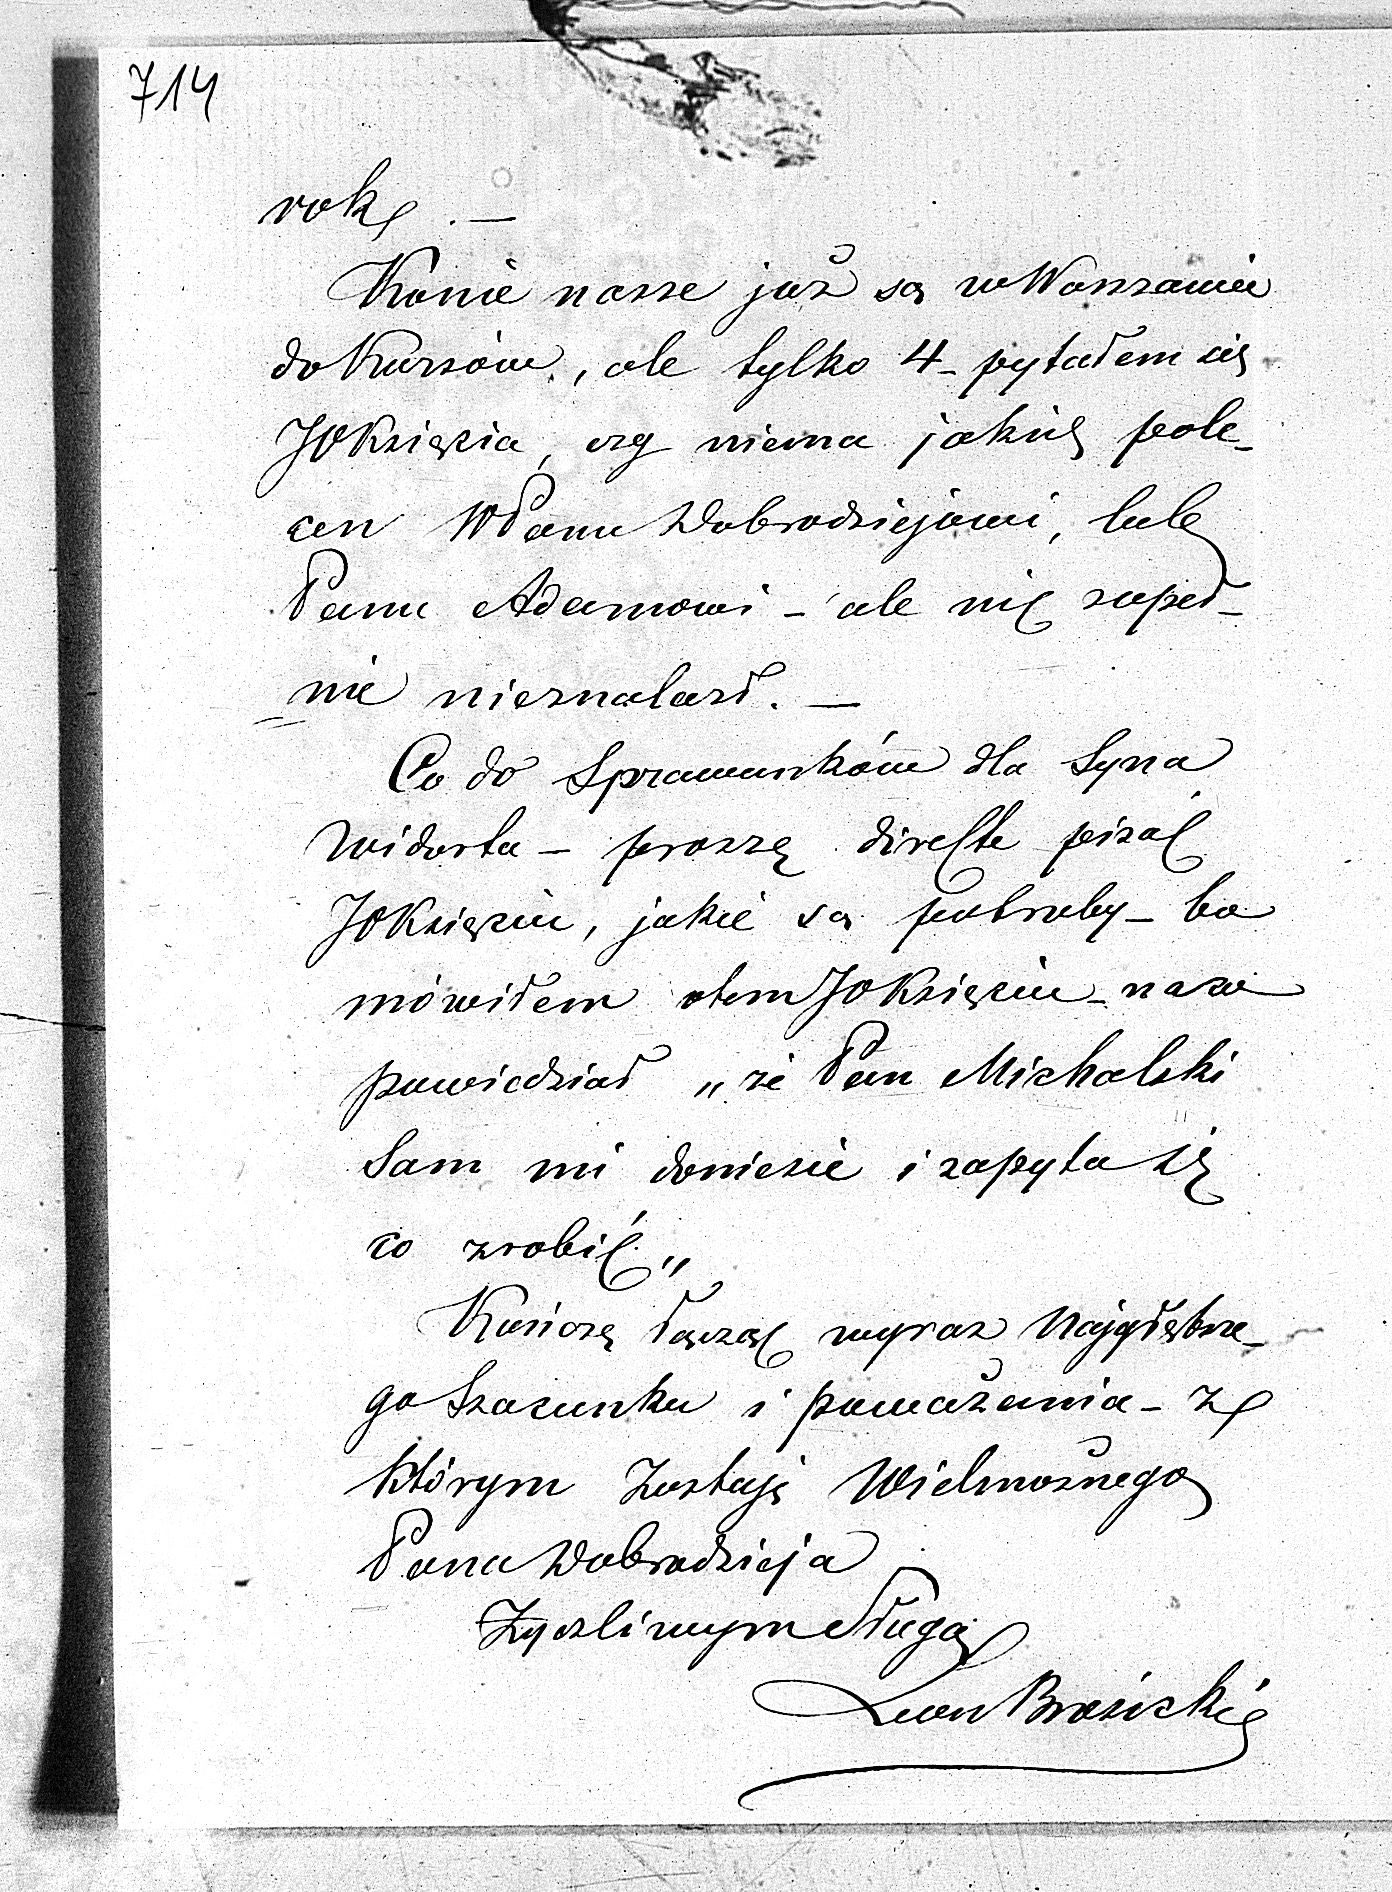 714
rokę . —
Konie nasze już są w Warszawie
do Kursów, ale tylko 4 - pytałem się
JO Księcia, czy niema jakich pole-
ceń WPanu Dobrodziejowi, lub
Panu Adamowi - ale nic zupeł-
nie nieznalazł. —
Co do Sprawunków dla Syna
Widorta - proszę directe pisać
JO Księciu, jakie są potrzeby - bo
mówiłem otem JO Księciu - na co
powiedział „że Pan Michalski
Sam mi doniesie i zapyta się
co zrobić„
Kończę łącząc wyraz Najgłębsze-
go Szacunku i poważania - z
którym zostaję Wielmożnego
Pana Dobrodzieja
Życzliwym Sługą
Leon Brozicki